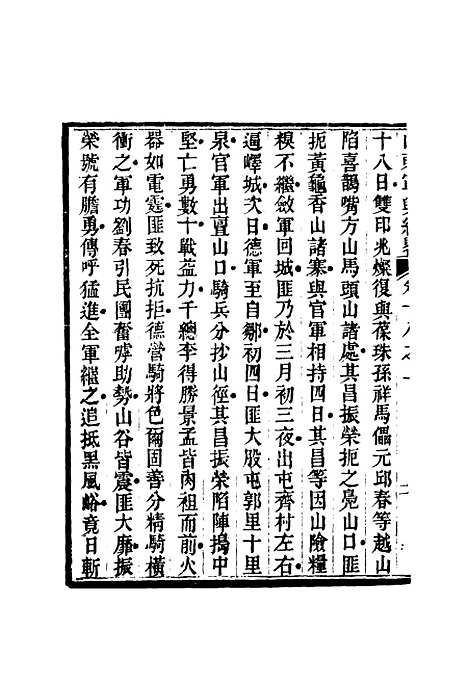 十八日雙印兆燦復與葆珠孫祥馬儡元邱春等越山
陷喜鵲嘴方山馬頭山諸處其昌振榮扼之鳧山口匪
扼黃龜香山諸寨與官軍相持四日其昌等因山險糧
糗不繼斂軍回城匪乃於三月初三夜出屯齊村左右
逼嶧城次日德軍至自鄒初四日匪大股屯郭里十里
泉官軍出亶山口騎兵分抄山徑其昌振榮陷陣搗中
堅亡勇數十戰益力千總李得勝景孟皆肉袒而前火
器如電霆匪致死抗拒德營騎將色爾固善分精騎橫
衝之軍功劉春引民團奮呼助勢山谷皆震匪大靡振
榮號有膽勇傳呼猛進全軍繼之追抵黑風峪竟日斬